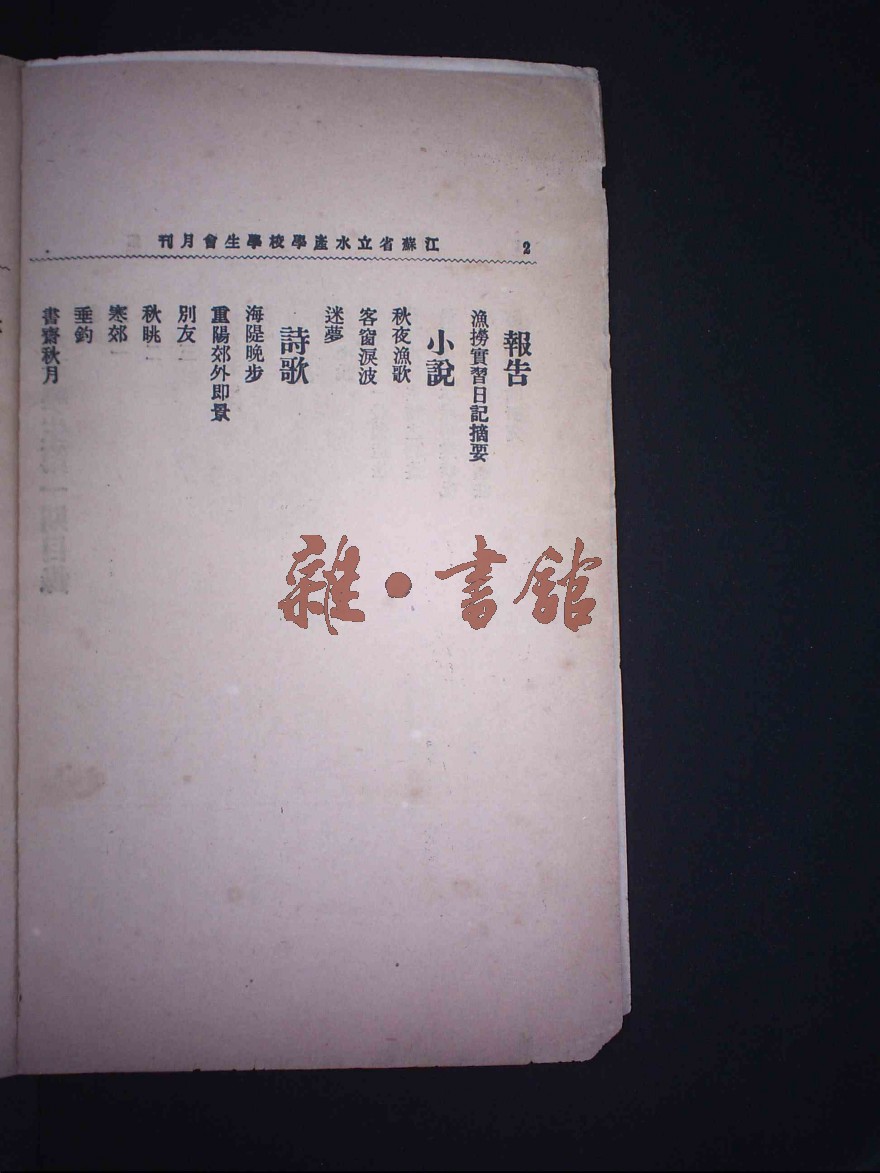 江蘇省立水產學校學生會月刊
2
報告
漁撈實習日記摘要
小說
秋夜漁歌
客窗淚波
迷夢
詩歌
海隄晚步
重陽郊外即景
別友二
秋眺二
寒郊一
垂釣
書齋秋月
雜·書館